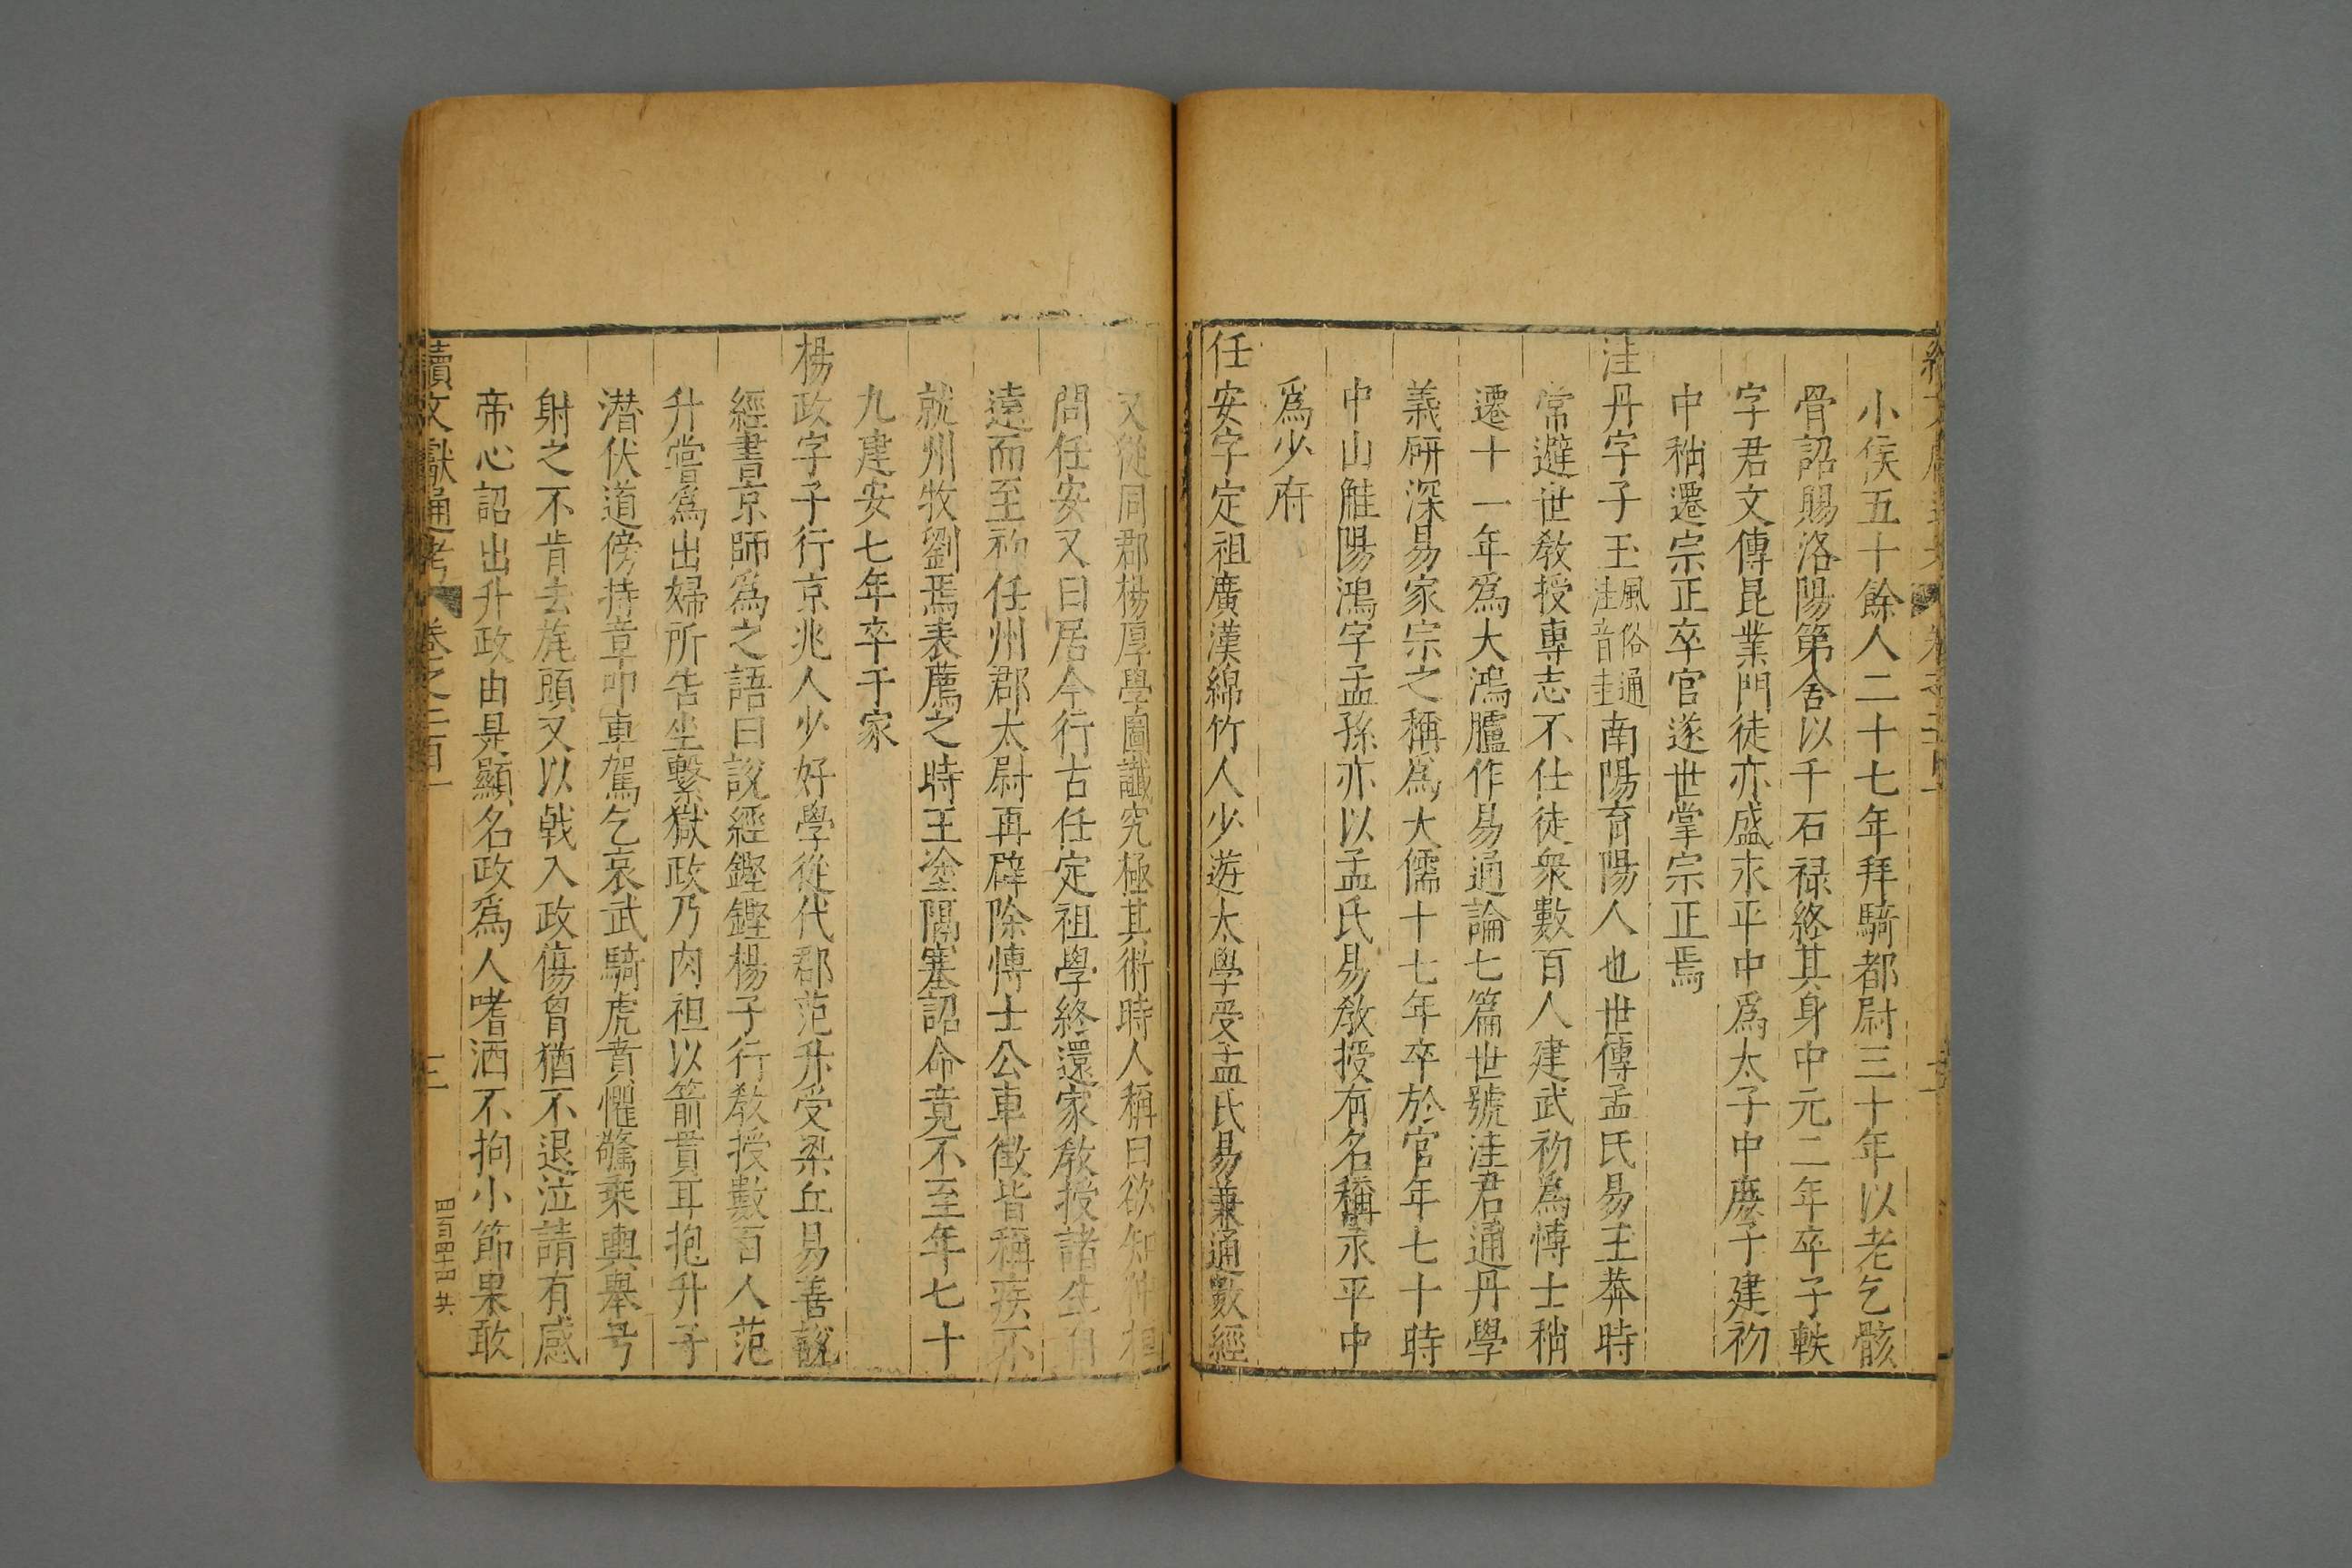 小侯五十餘人二十七年拜騎都尉三十年以老乞骸
骨詔賜洛陽第舍以千石禄終其身中元二年卒子軼
字君文傳昆業門徒亦盛末平中爲太子中庶子建初
中稍遷宗正卒官遂世掌宗正焉
洼丹字子玉風俗通洼音圭南陽育陽人也世傳孟氏易王莽時
常避世教授專志不仕徒衆數百人建武初爲博士稍
遷十一年爲大鴻臚作易通論七篇世號洼君通丹學
義研深易家宗之稱爲大儒十七年卒於官年七十時
中山觟陽鴻字孟孫亦以孟氏易教授有名稱永平中
爲少府
任安字定祖廣漢綿竹人少遊太學受孟氏易兼通數經
又從同郡楊厚學圖讖究極其術時人稱曰欲知仲桓
問任安又曰居今行古任定祖學終還家教授諸生自
遠而至初任州郡太尉再辟除博士公車徵皆稱疾不
就州牧劉焉表薦之時王塗隔塞詔命竟不至年七十
九建安七年卒于家
楊政字子行京兆人少好學從代郡范升受梁丘易善說
經書京師爲之語曰說經鏗鏗楊子行教授數百人范
升嘗爲出婦所告坐繫獄政乃肉袒以箭貫耳抱升子
潜伏道傍持章叩車駕乞哀武騎虎賁懼驚乘輿舉弓
射之不肯去旄頭又以戟入政傷胷猶不退泣請有感
帝心詔出升政由是顯名政爲人嗜酒不拘小節果敢
續文獻通考 卷之二百一 三 四百四十四 共